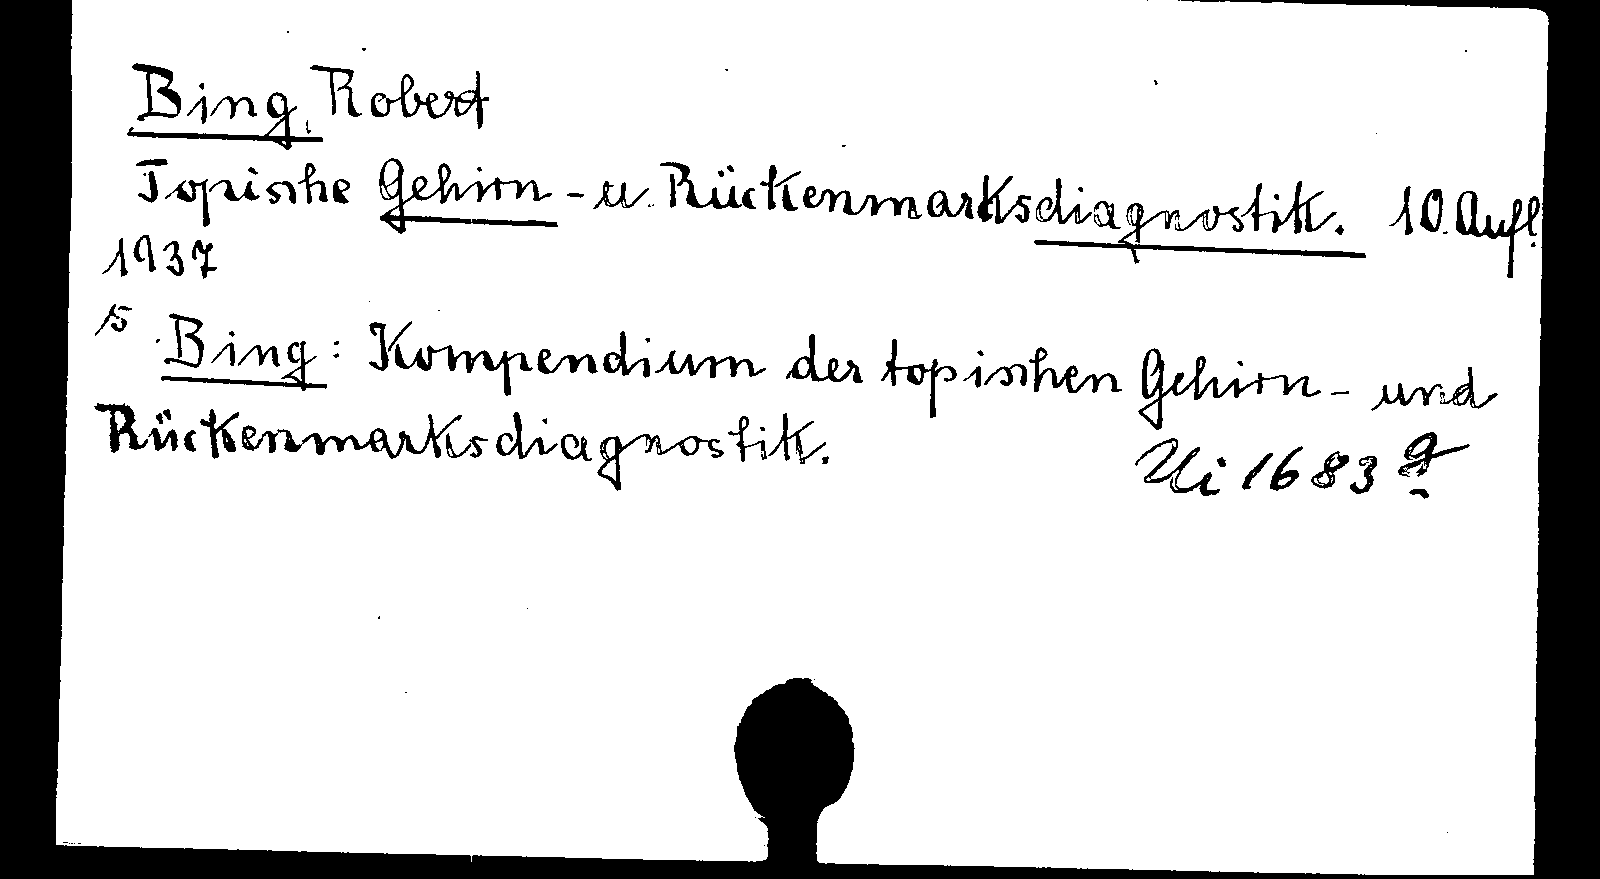 Bing, Robert
Topische Gehirn- u. Rückenmarksdiagnostik. 10. Aufl.
1937
s Bing: Kompendium der topischen Gehirn- und
Rückenmarksdiagnostik.
Ui 1683 g